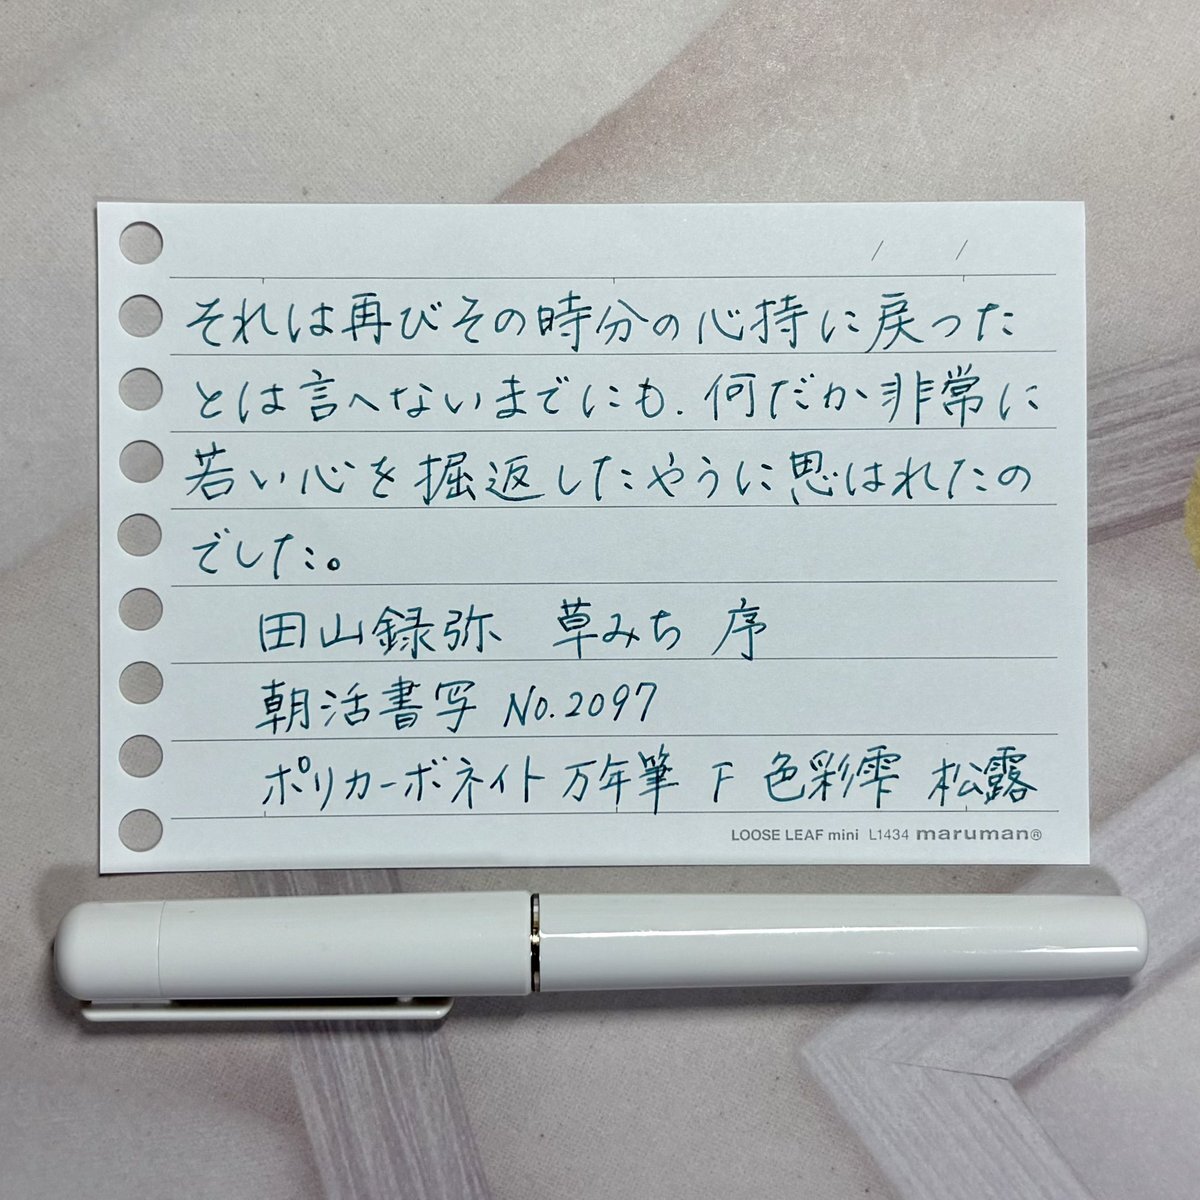 / /
それは再びその時分の心持に戻った
とは言へないまでにも.何だか非常に
若い心を掘返したやうに思はれたの
でした。
田山録弥 草みち 序
朝活書写 No.2097
ポリカーボネイト万年筆 F 色彩雫 松露
LOOSE LEAF mini L1434 maruman®